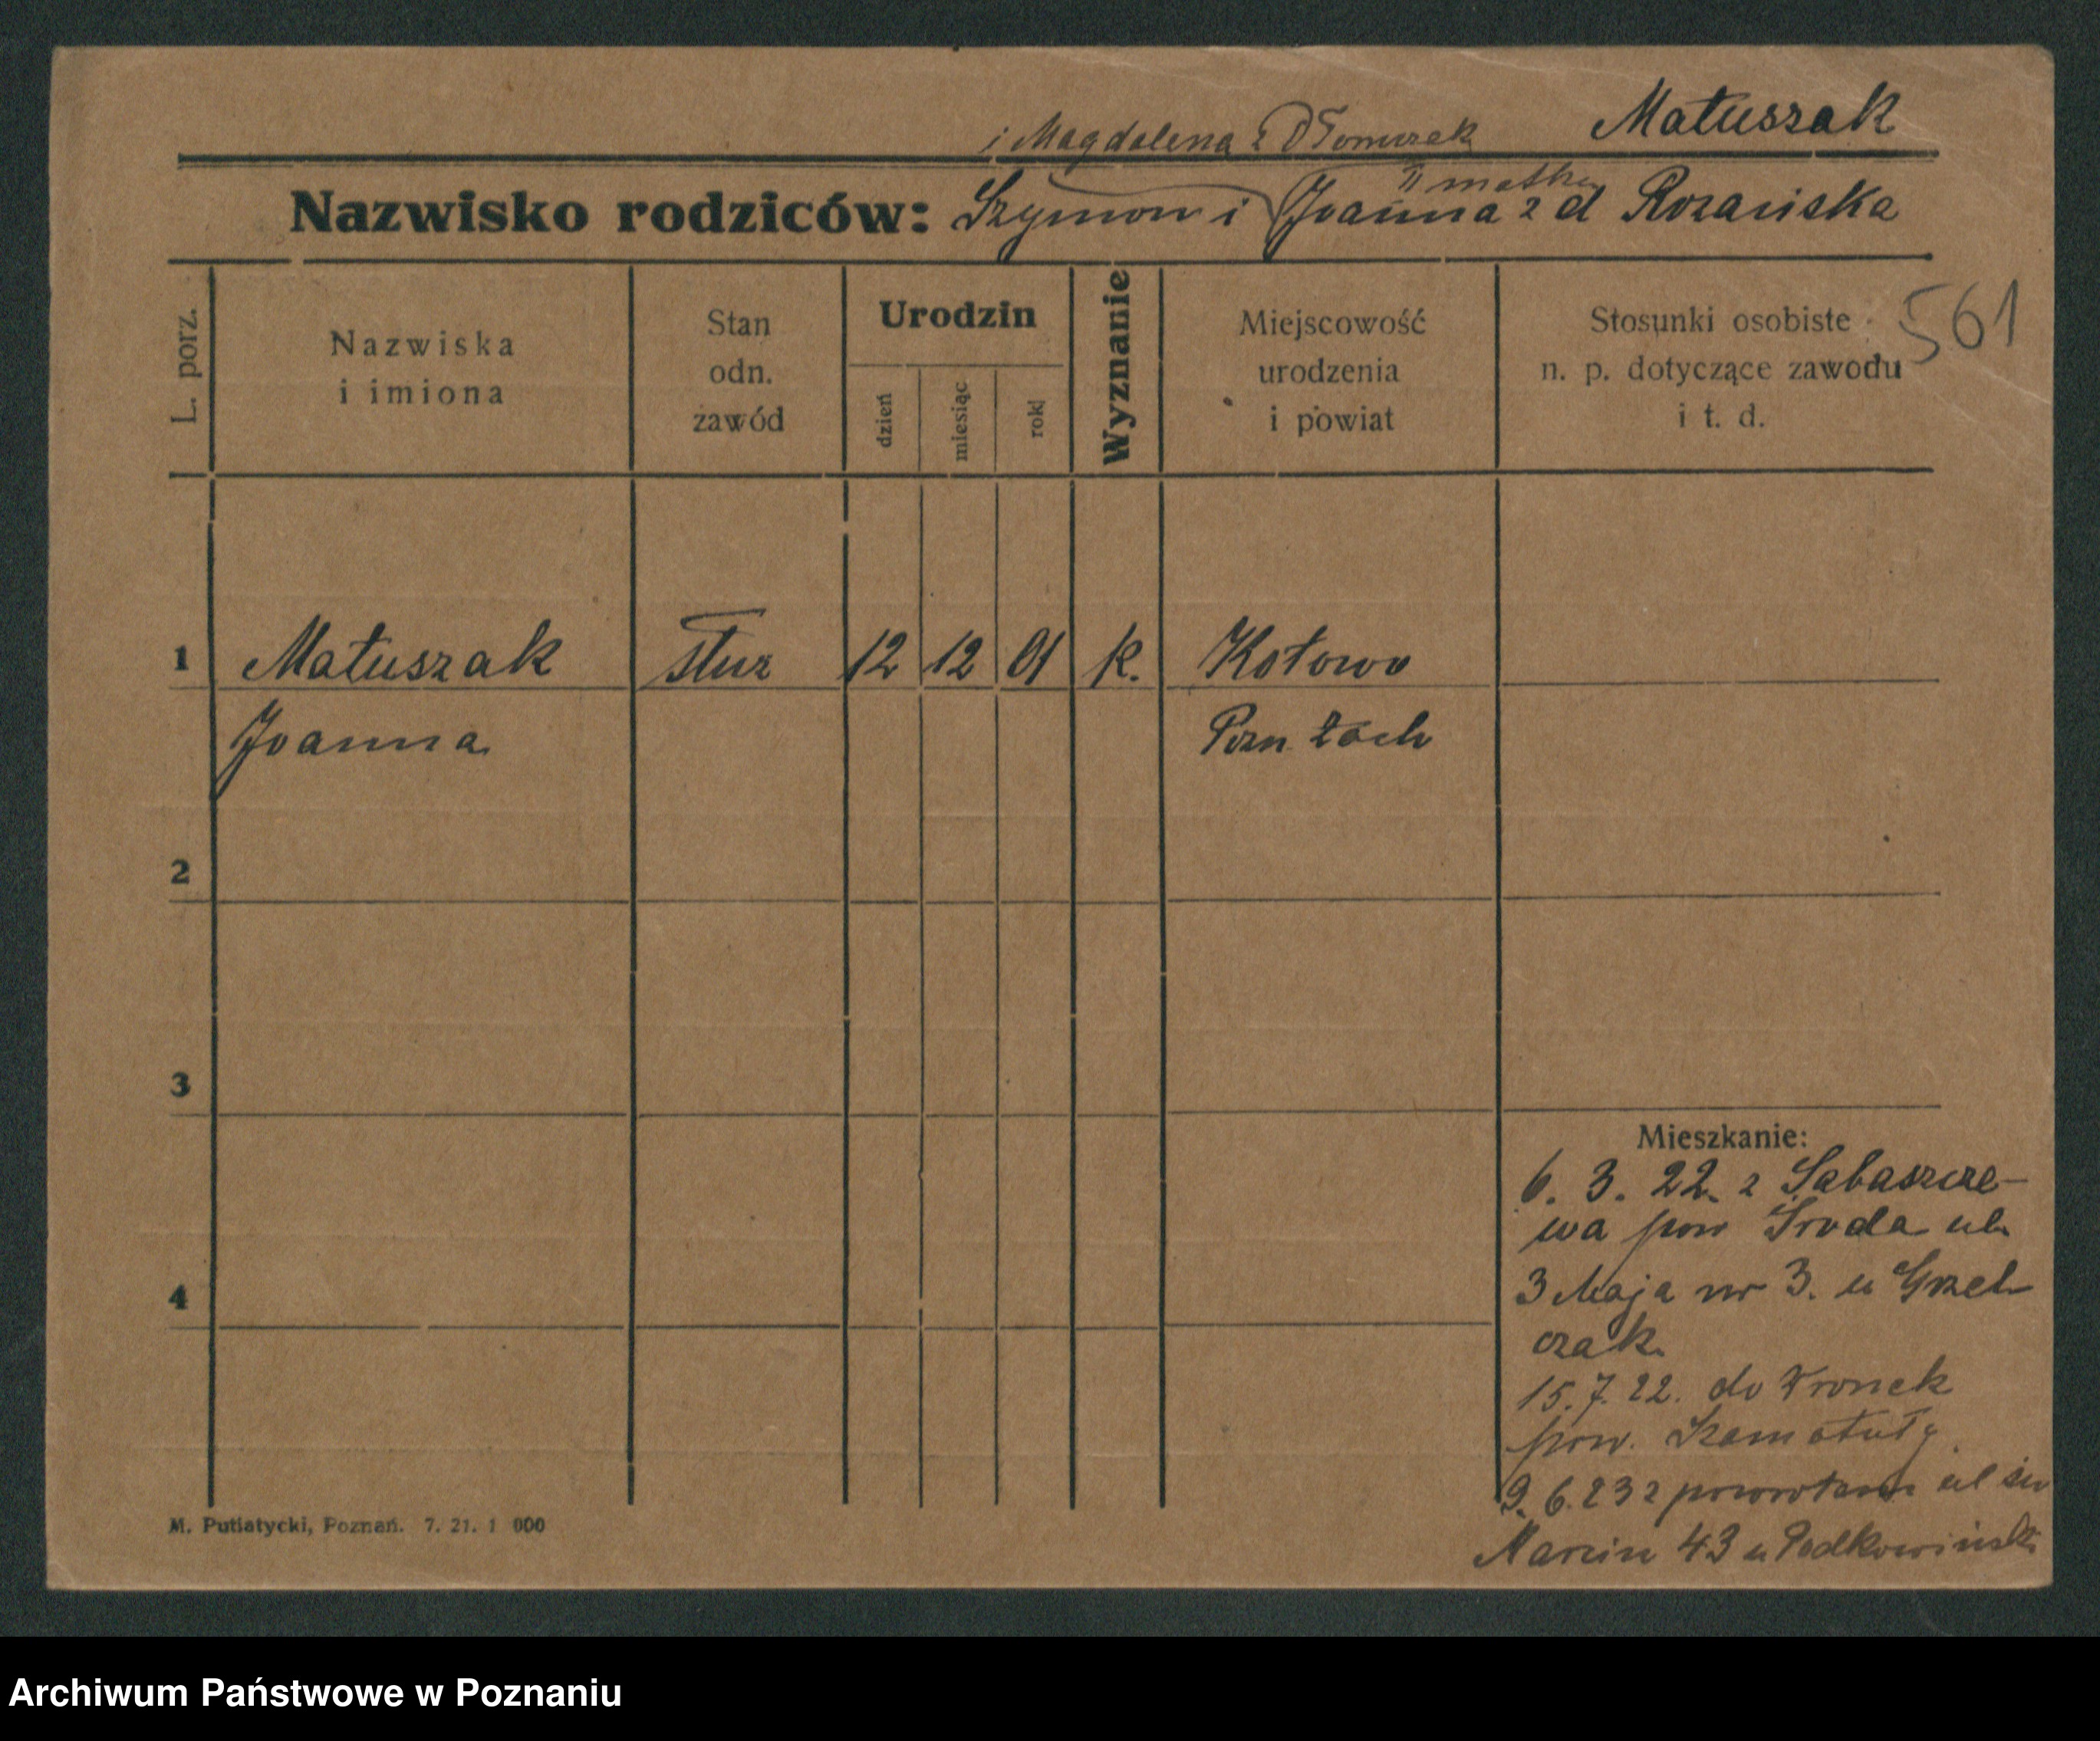 Matuszak
i Magdalena z D Tomczak
II matka
Nazwisko rodziców: Szymon i Joanna z d Rozańska
561
L. porz.
Nazwiska
i imiona
Stan
odn.
zawód
Urodzin
dzień
miesiąc
rok
Wyznanie
Miejscowość
urodzenia
i powiat
Stosunki osobiste
n. p. dotyczące zawodu
i t. d.
1 Matuszak służ 12 12 01 k. Kotowo
Joanna Pozn Zach
2
3
4
Mieszkanie:
6. 3. 22. z Sabaszcze-
wa pow Środa ul.
3 Maja nr 3. u Grzel
czak.
15.7.22. do Wronek
pow. Szamotuły
9. 6. 23 z powrotem ul św
Marcin 43 u Podkowiński
M. Putiatycki, Poznań. 7. 21. 1 000
Archiwum Państwowe w Poznaniu